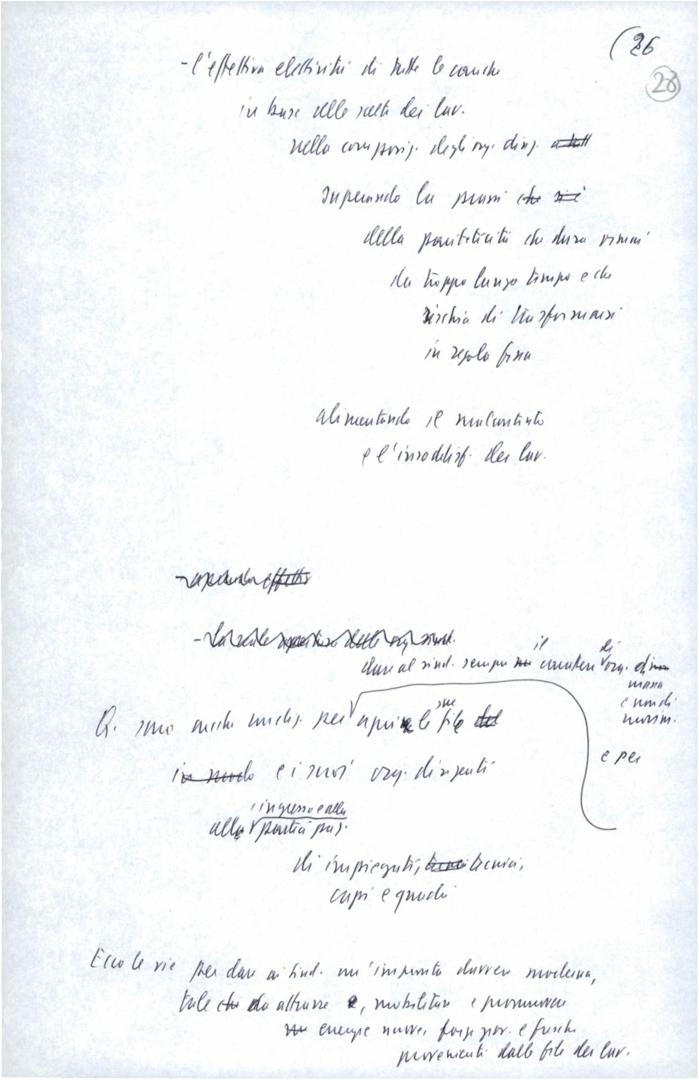 (26
28
- l'effettiva elettività di tutte le cariche
in base alle scelte dei lav.
nella composiz. degli org. dirig.
superando la prassi che si è
della pariteticità che dura ormai
da troppo lungo tempo e che
rischia di trasformarsi
in regola fissa
alimentando il malcontento
e l'insoddisf. dei lav.
dare al sind. sempre il carattere di org. di
massa
e non di
minor.
Qs. sono anche indisp. per aprire le sue file
e per
in modo e i suoi org. dirigenti
alla ingresso e alla
partecipaz.
di impiegati, tecnici,
capi e quadri
Ecco le vie per dare ai sind. un'impronta davvero moderna,
tale che da attrarre, mobilitare e promuovere
energie nuove, forze giov. e fresche
provenienti dalle file dei lav.